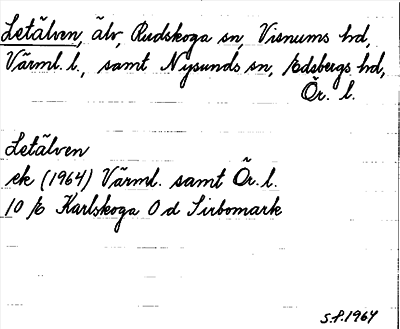 Letälven, älv, Rudskoga sn, Visnums hd,
Värml. l., samt Nysunds sn, Edsbergs hd,
Ör. l.
Letälven
ek (1964) Värml. samt Ör. l.
10 Karlskoga 0 d Sirbomark
S.P. 1964